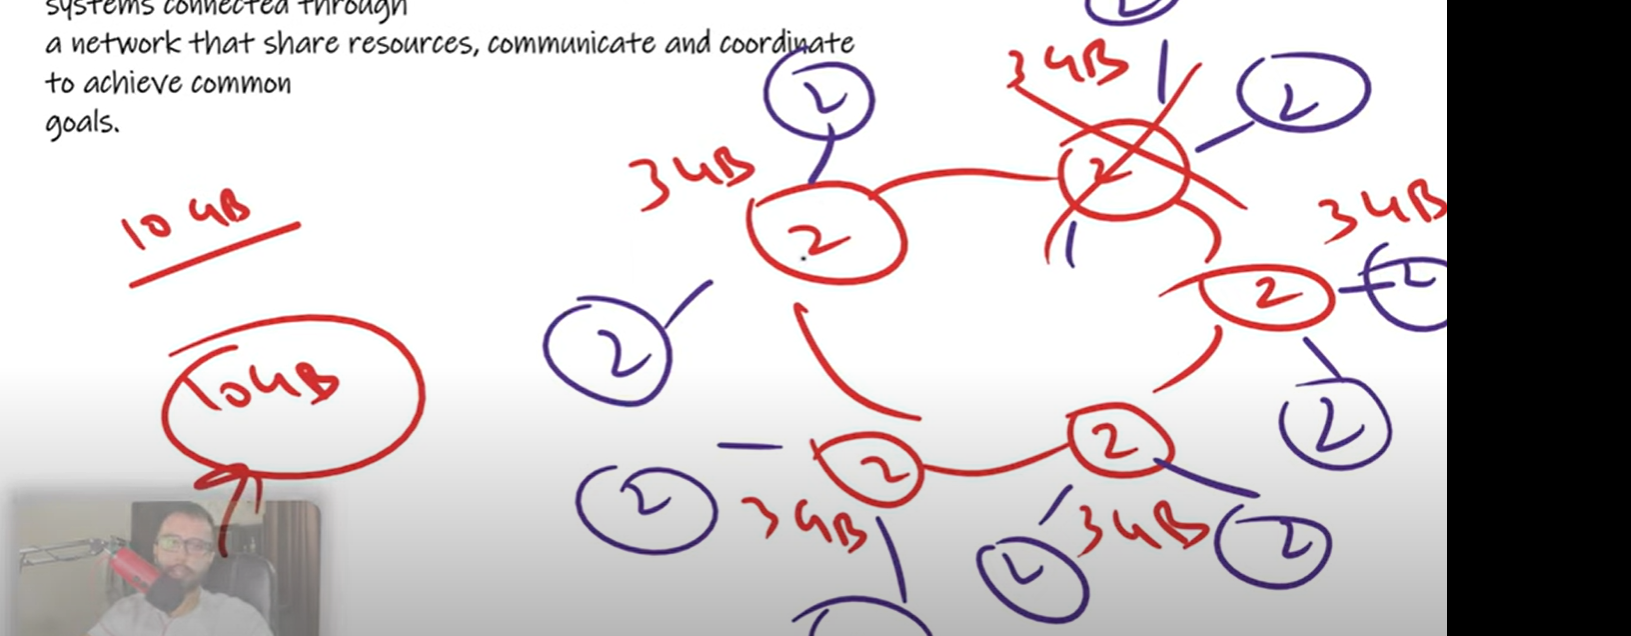 systems connected through
a network that share resources, communicate and coordinate
to achieve common
goals.
2
3 GB
2
2
3 GB
2
10 GB
2
3 GB
2
2
2
10 GB
2
2
2
2
3 GB
3 GB
2
2